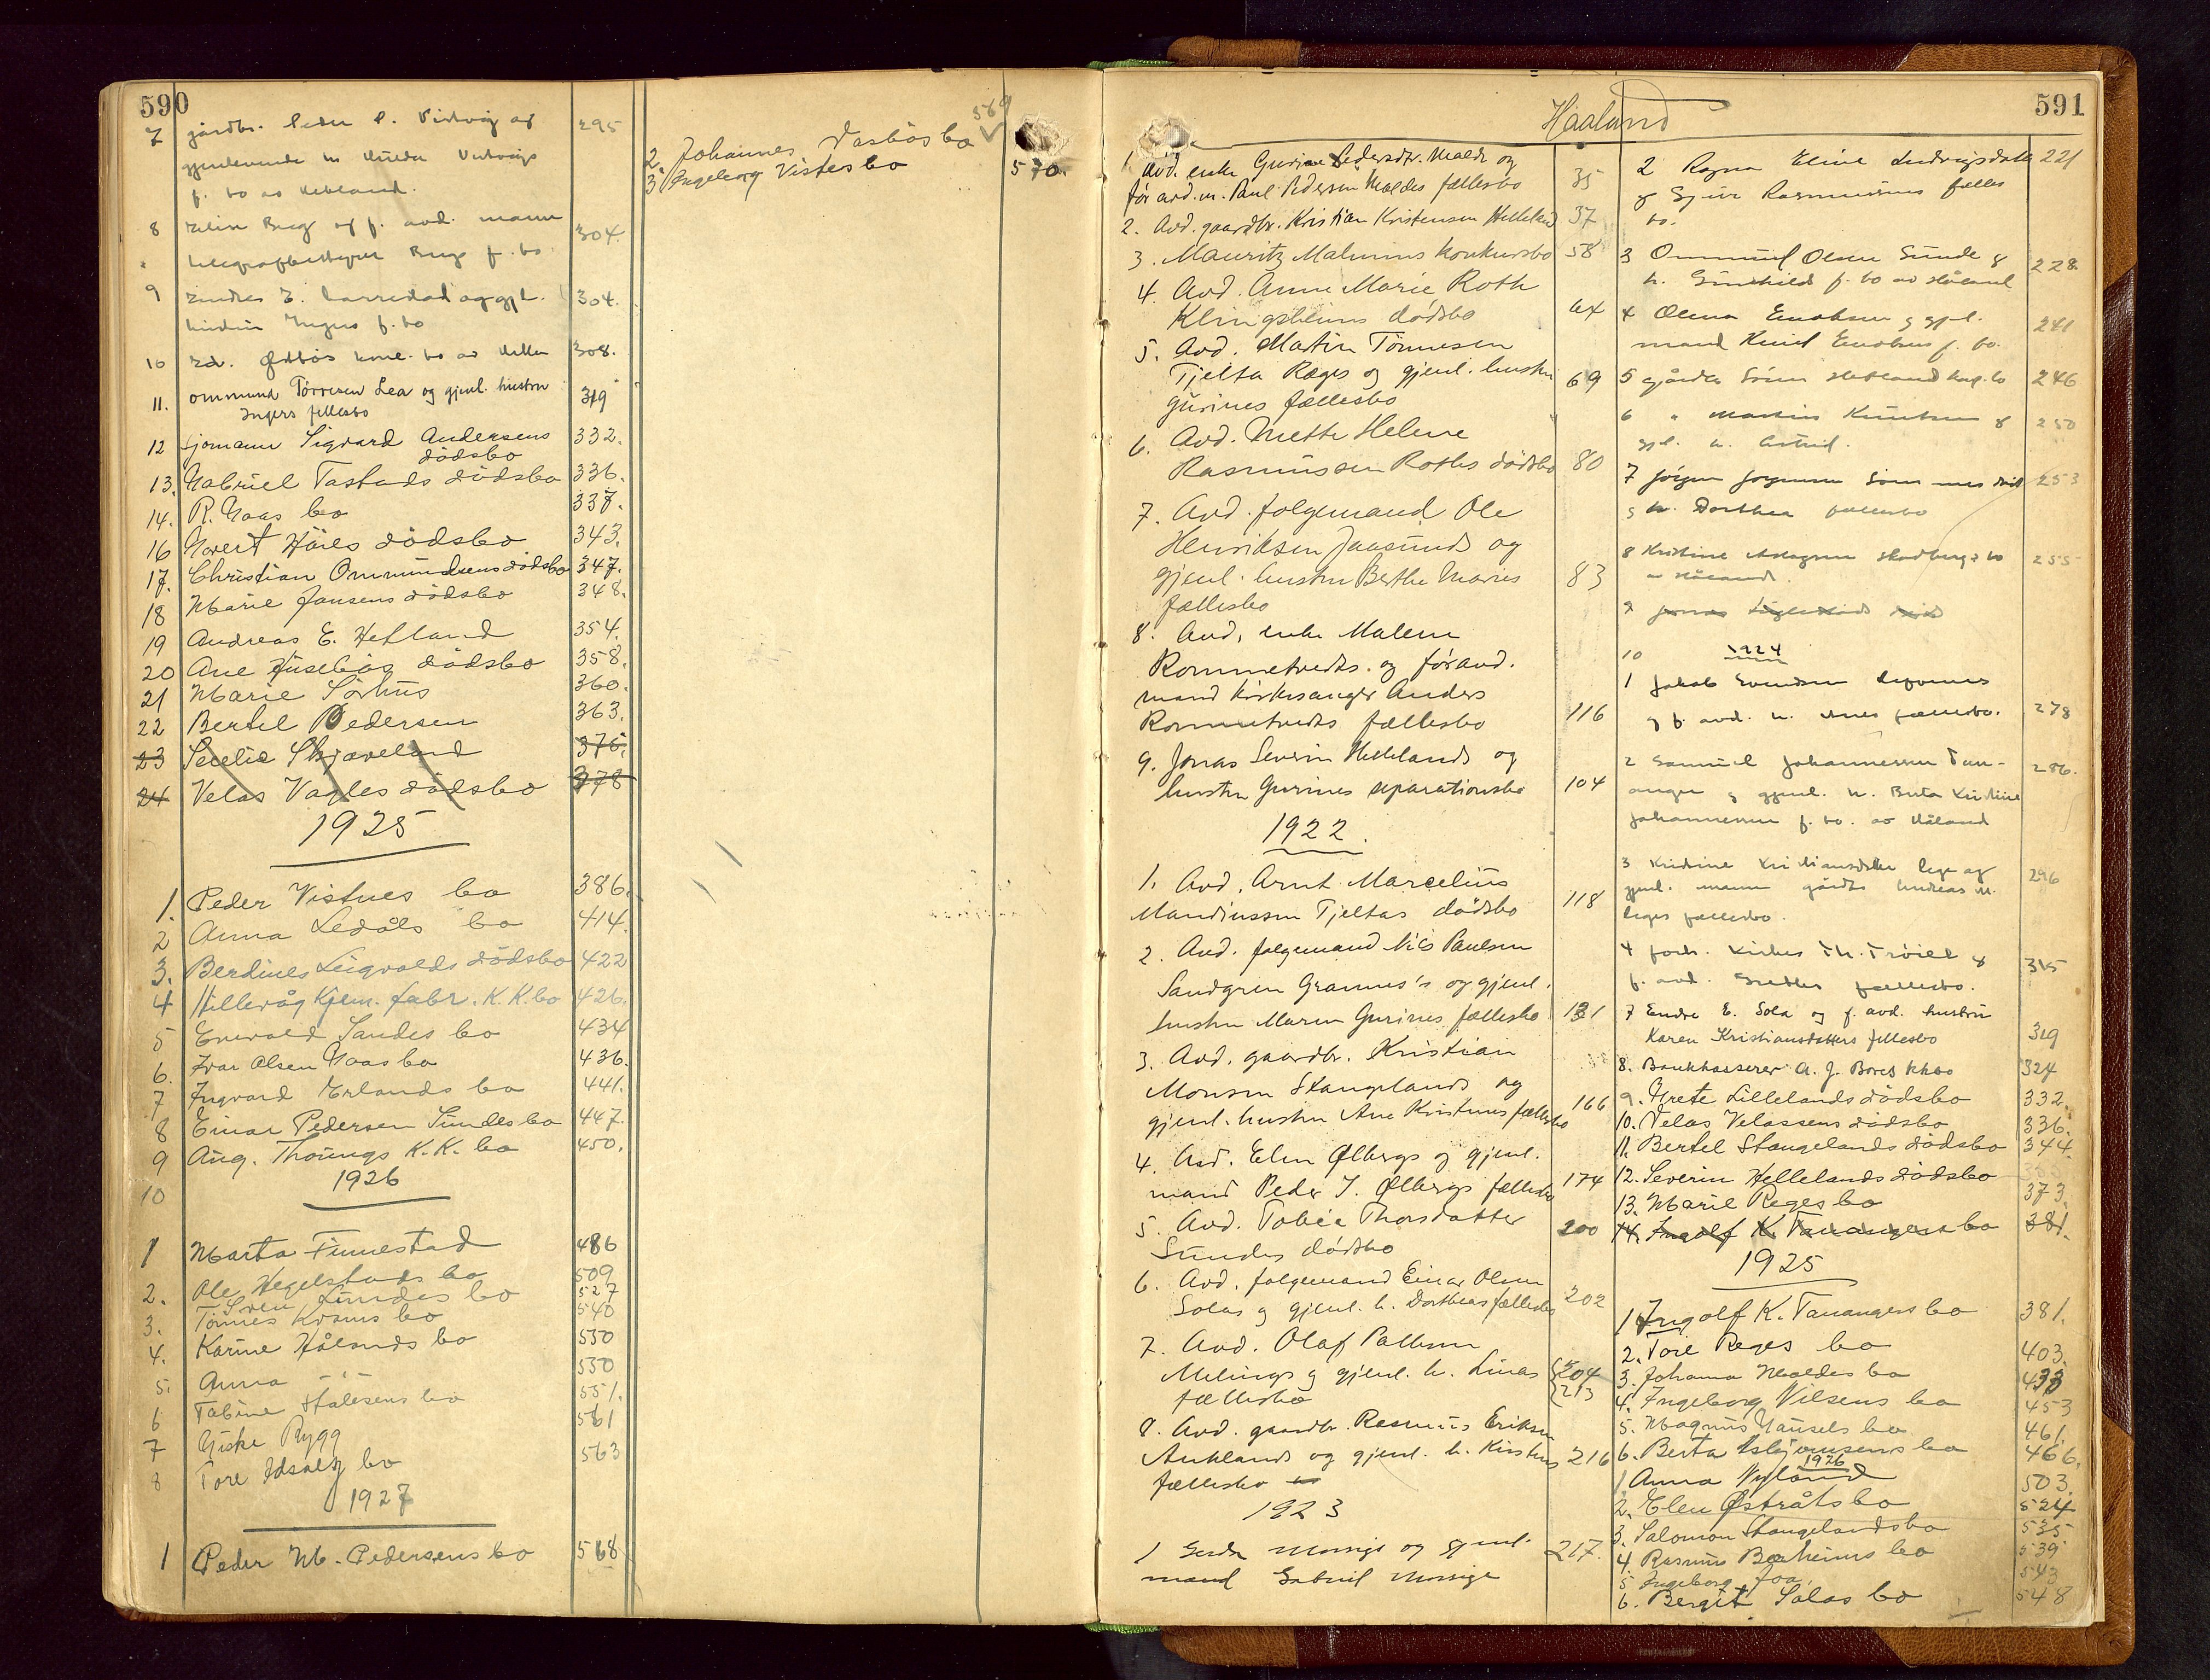 590
7 gårdbr. Peder P. Vistvig og 295
gjenlevende h. Hulda Vistvigs
f. bo av Hetland.
8 Berg og f. avd. mann 304.
telegrafbestyrer Berg f. bo
9 Endre E. og gjl. 304.
hustru Ingers f. bo
10 bo av Hetland 308.
11. Ommund Tørresen Lea og gjenl. hustru 319
Ingers fellesbo
12 Sjømann Sigvard Andersens 332.
dødsbo
13. Gabriel Tastads dødsbo 336.
14. R. Haas bo 337.
16 Govert Håres dødsbo 343.
17. Christian Ommundsens dødsbo 347.
18 Marie Jansens dødsbo 348.
19 Andreas E. Hetland 354.
20 Ane Husebøs dødsbo 358.
21 Marie Sørhus 360.
22 Bertel Pedersen 363.
23 Serelie Skjæveland 376.
24 Velas Vagles dødsbo 378
1925
1. Peder Vistnes bo 386.
2 Anna Ledåls bo 414.
3. Berdines Leigvolds dødsbo 422
4 Hillevåg Kjem. fabr. K.K.bo 426.
5 Enevald Sandes bo 434
6. Ivar Olsen Haas bo 436.
7 Ingvard Erlands bo 441.
8 Einar Pedersen Sundes bo 447.
9 Aug. Thorungs K.K. bo 450.
10 1926
1 Marta Finnestad 486
2. Ole Hegelstads bo 509
Sven Lindes bo 527
3. Tønnes Kvams bo 540
4. Karine Hålands bo 550
5. Anna - - 550
6 Tabine Stålesens bo 551.
7 Giske Rygg 561
8 Tore Idsals bo 563
1927
1 Peder M. Pedersens bo 568
569
2. Johannes Vasbøs bo
3 Ingeborg Vistes bo 570.
Haaland
591
1. Avd. enke Gurine Pedersdtr. Malde og
før avd. m. Paul Pedersen Maldes fællesbo 35
2. Avd. gaardbr. Kristian Kristensen Helleland 37
3. Mauritz Malmins konkursbo 58
4. Avd. Anne Marie Roth
Klingsheims dødsbo 64
5. Avd. Martin Tönnesen
Tjelta Ræges og gjenl. hustru 69
Gurines fællesbo
6. Avd. Mette Helene
Rasmussen Roths dødsbo 80
7. Avd. folgemand Ole
Henriksen Jaasunds og
gjenl. hustru Berthe Maries 83
fællesbo
8. Avd. enke Malene
Rommetvedts og før avd.
mand kirkesanger Anders
Rommetvedts fællesbo 116
9. Jonas Severin Hellelands og
hustru Gurines separationsbo 104
1922.
1. Avd. Arnt Marcelius
Mandiussen Tjeltas dødsbo 118
2. Avd. folgemand Nils Paulsen
Sandgren Grannes's og gjenl.
hustru Maren Gurines fællesbo 131
3. Avd. gaardbr. Kristian
Monsen Stangelands og
gjenl. hustru Ane Kristines fællesbo 166
4. Avd. Elen Ølbergs og gjenl.
mand Peder I. Ølbergs fællesbo 174
5. Avd. Tobia Thorsdatter
Sundes dødsbo 200
6. Avd. folgemand Einar Olsen
Solas og gjenl. h. Dortheas fællesbo 202
7. Avd. Olaf Pallesen
Melings og gjenl. h. Linas 204
fællesbo 213
8. Avd. gaardbr. Rasmus Eriksen
Anklands og gjenl. h. Kirstines 216
fællesbo
1923
1 Serdn Mossige og gjenl. 217.
mand Gabriel Mossige
2 Ragna Eline Ludvigsdatter 221
og Rasmussens felles
bo.
3 Ommund Olsen Sunde & 228.
h. Gunhilds f. bo av Håland
4 Olena Enoksen og gjl. 241
mand Knud Enoksens f. bo.
5 gårdbr. Sören Hetland 246
6 " Martin Knutsen & 250
gjl. h. Astrid.
7 Jörgen Jörgensen 253
og h. Dorthea fællesbo
8 Kristine Skadbergs bo 255
av Håland.
9 Jonas
10 1924
1 Jakob Evendsen
og f. avd. h. Anes fællesbo. 278
2 Samuel Johannessen Tan- 286.
anger og gjenl. h. Berta Kristine
Johannessen f. bo. av Håland
3 Kristine Kristiansdatter Rege og 296
gjenl. mann gårdbr. Andreas M.
Reges fællesbo.
4 forh. Th. Trøiel & 315
f. avd. fællesbo.
7 Endre E. Sola og f. avd. hustru
Karen Kristiansdatters fellesbo 319
8. Bankkasserer A. J. Bores kkbo 324
9. Grete Lillelands dødsbo 332.
10. Velas Velassens dødsbo 336.
11. Bertel Stangelands dødsbo 344.
12. Severin Hellelands dødsbo
13. Marie Reges bo 373.
14. Ingolf K. Tanangers bo 381.
1925
1 Ingolf K. Tanangers bo 381.
2. Tore Reges bo 403.
3. Johanna Maldes bo 433
4. Ingeborg Vilsens bo 453
5. Magnus Gausels bo 461.
6. Berta Asbjørnsens bo 466.
1926
1 Anna Nyland 503.
2. Elen Østråts bo 524
3. Salomon Stangelands bo 535
4. Rasmus Bærheims bo 539
5 Ingeborg Joa 543
6. Bergit Solas bo 548